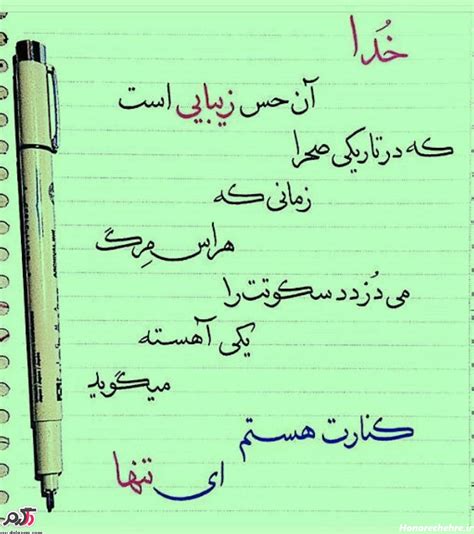 خُدا
آن حس زیبایی است
که در تاریکی صحرا
زمانی که
هراس مِرگ
می دُزدد سکوتت را
یکی آهسته
میگوید
کنارت هستم
ای تنها
Honarechehre.ir